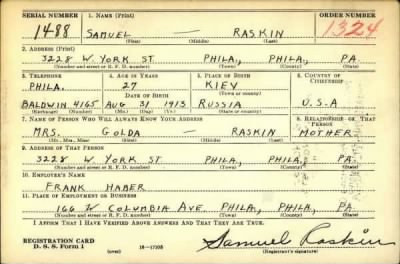 SERIAL NUMBER 1. NAME (Print) ORDER NUMBER
1488 SAMUEL — RASKIN 1324
(First) (Middle) (Last)
2. ADDRESS (Print)
3228 W. YORK ST. PHILA., PHILA., PA.
(Number and street or R. F. D. number) (Town) (County) (State)
3. TELEPHONE 4. AGE IN YEARS 5. PLACE OF BIRTH 6. COUNTRY OF CITIZENSHIP
PHILA. 27 KIEV
DATE OF BIRTH
BALDWIN 4165 AUG 31 1913 RUSSIA U.S.A
(Exchange) (Number) (Mo.) (Day) (Yr.) (State or country)
7. NAME OF PERSON WHO WILL ALWAYS KNOW YOUR ADDRESS 8. RELATIONSHIP OF THAT PERSON
MRS. GOLDA — RASKIN MOTHER
(Mr., Mrs., Miss) (First) (Middle) (Last)
9. ADDRESS OF THAT PERSON
3228 W YORK ST. PHILA, PHILA. PA.
(Number and street or R. F. D. number) (Town) (County) (State)
10. EMPLOYER'S NAME
FRANK HABER
11. PLACE OF EMPLOYMENT OR BUSINESS
166 W COLUMBIA AVE. PHILA, PHILA, PA.
(Number and street or R. F. D. number) (Town) (County) (State)
I AFFIRM THAT I HAVE VERIFIED ABOVE ANSWERS AND THAT THEY ARE TRUE.
REGISTRATION CARD
D. S. S. Form 1 (over) 16—17105 Samuel Raskin
(Registrant's signature)